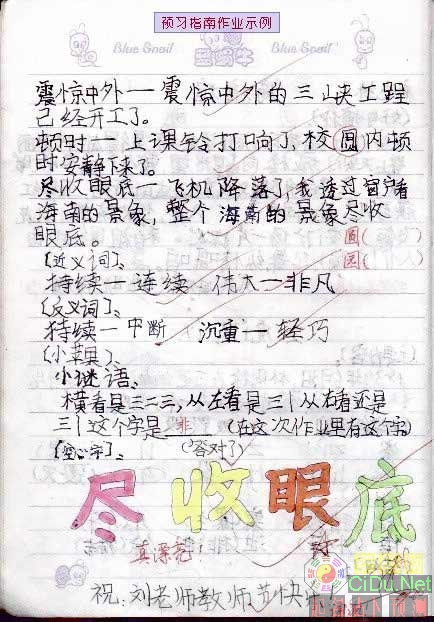 预习指南作业示例
Blue Snail
蓝蜗牛
Blue Snail
震惊中外一震惊中外的三峡工程
已经开工了。
顿时一上课铃打响了,校圆内顿
时安静下来了。
尽收眼底一飞机降落了,我透过窗户看
海南的景象,整个海南的景象尽收
眼底。
圆( )
园( )
〔近义词〕、
持续一连续 伟大一非凡
〔反义词〕、
持续一中断 沉重一轻巧
〔小苹果〕、
小谜语、
横看是三二三,从左看是三丨从右看还是
三丨这个字是 非 (在这次作业里有这个字)
(答对了)
尽收眼底
真漂亮!
祝:刘老师教师节快乐
CiDu.Net